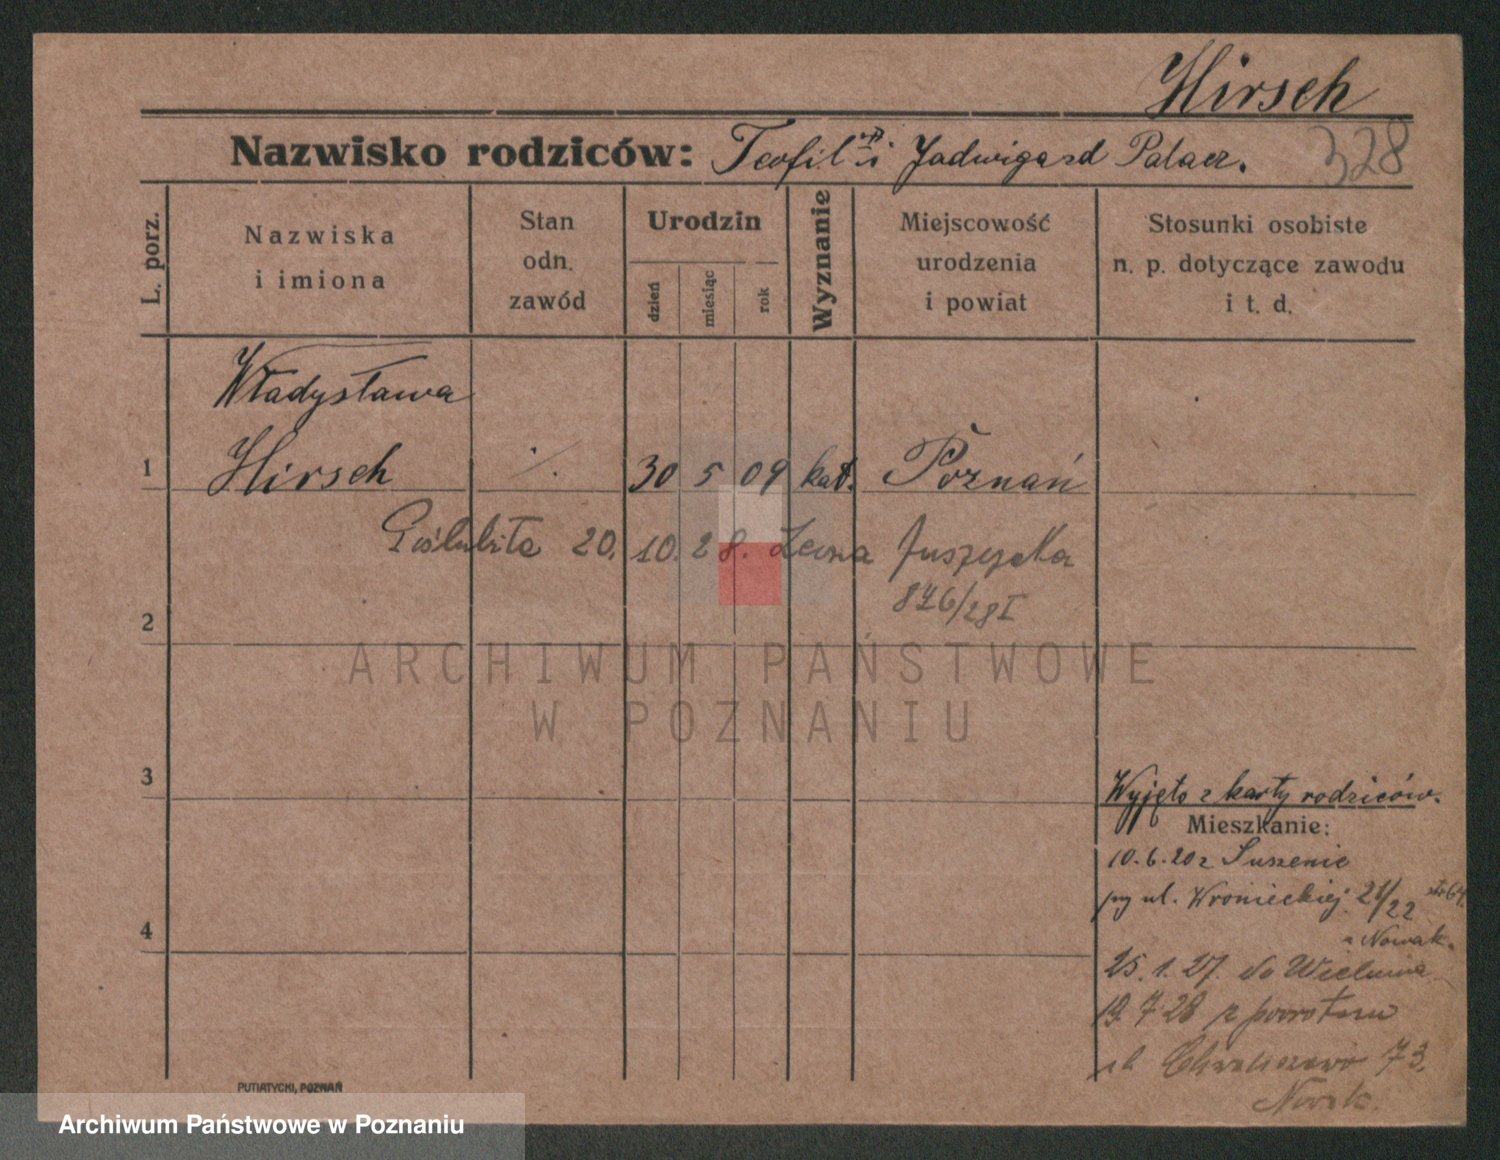 Hirsch
Nazwisko rodziców: Teofil i Jadwiga zd Palacz.
328
L. porz.
Nazwiska i imiona
Stan odn. zawód
Urodzin
dzień
miesiąc
rok
Wyznanie
Miejscowość urodzenia i powiat
Stosunki osobiste n. p. dotyczące zawodu i t. d.
Władysława
1 Hirsch ./. 30 5 09 kat. Poznań
Poślubiła 20. 10. 28. Leona Juszczaka
876/28 I
2
ARCHIWUM PAŃSTWOWE
W POZNANIU
3
Wyjęto z karty rodziców.
Mieszkanie:
10.6.20 z Suszenie
przy ul. Wronieckiej 21/22
4
Nowak.
25.1.27. do Wielunia
19.7.28 z powrotem
ul. Chwaliszewo 73.
Nowak.
PUTIATYCKI, POZNAŃ
Archiwum Państwowe w Poznaniu